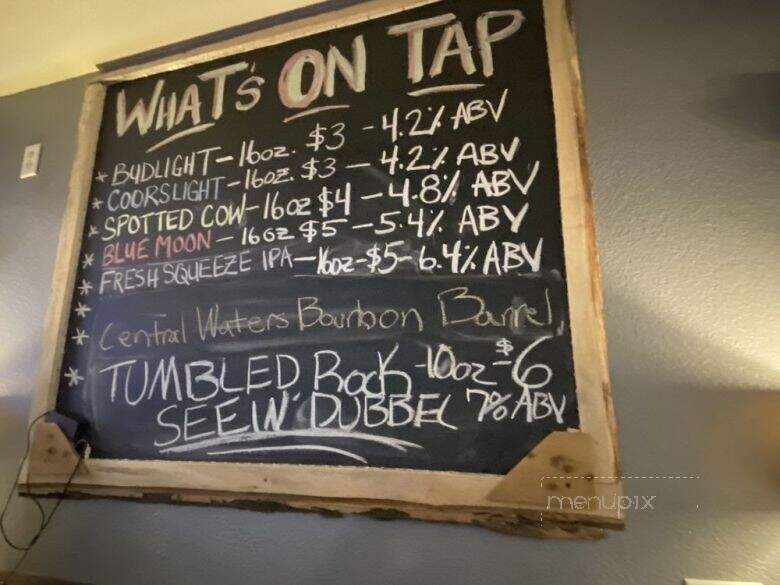 WHAT'S ON TAP
* BUDLIGHT - 16oz. $3 - 4.2% ABV
* COORSLIGHT - 16oz. $3 - 4.2% ABV
* SPOTTED COW - 16oz $4 - 4.8% ABV
* BLUE MOON - 16oz $5 - 5.4% ABV
* FRESH SQUEEZE IPA - 16oz - $5 - 6.4% ABV
*
* Central Waters Bourbon Barrel
* TUMBLED Rock - 10oz - $6
SEEIN' DUBBEL 7% ABV
menupix